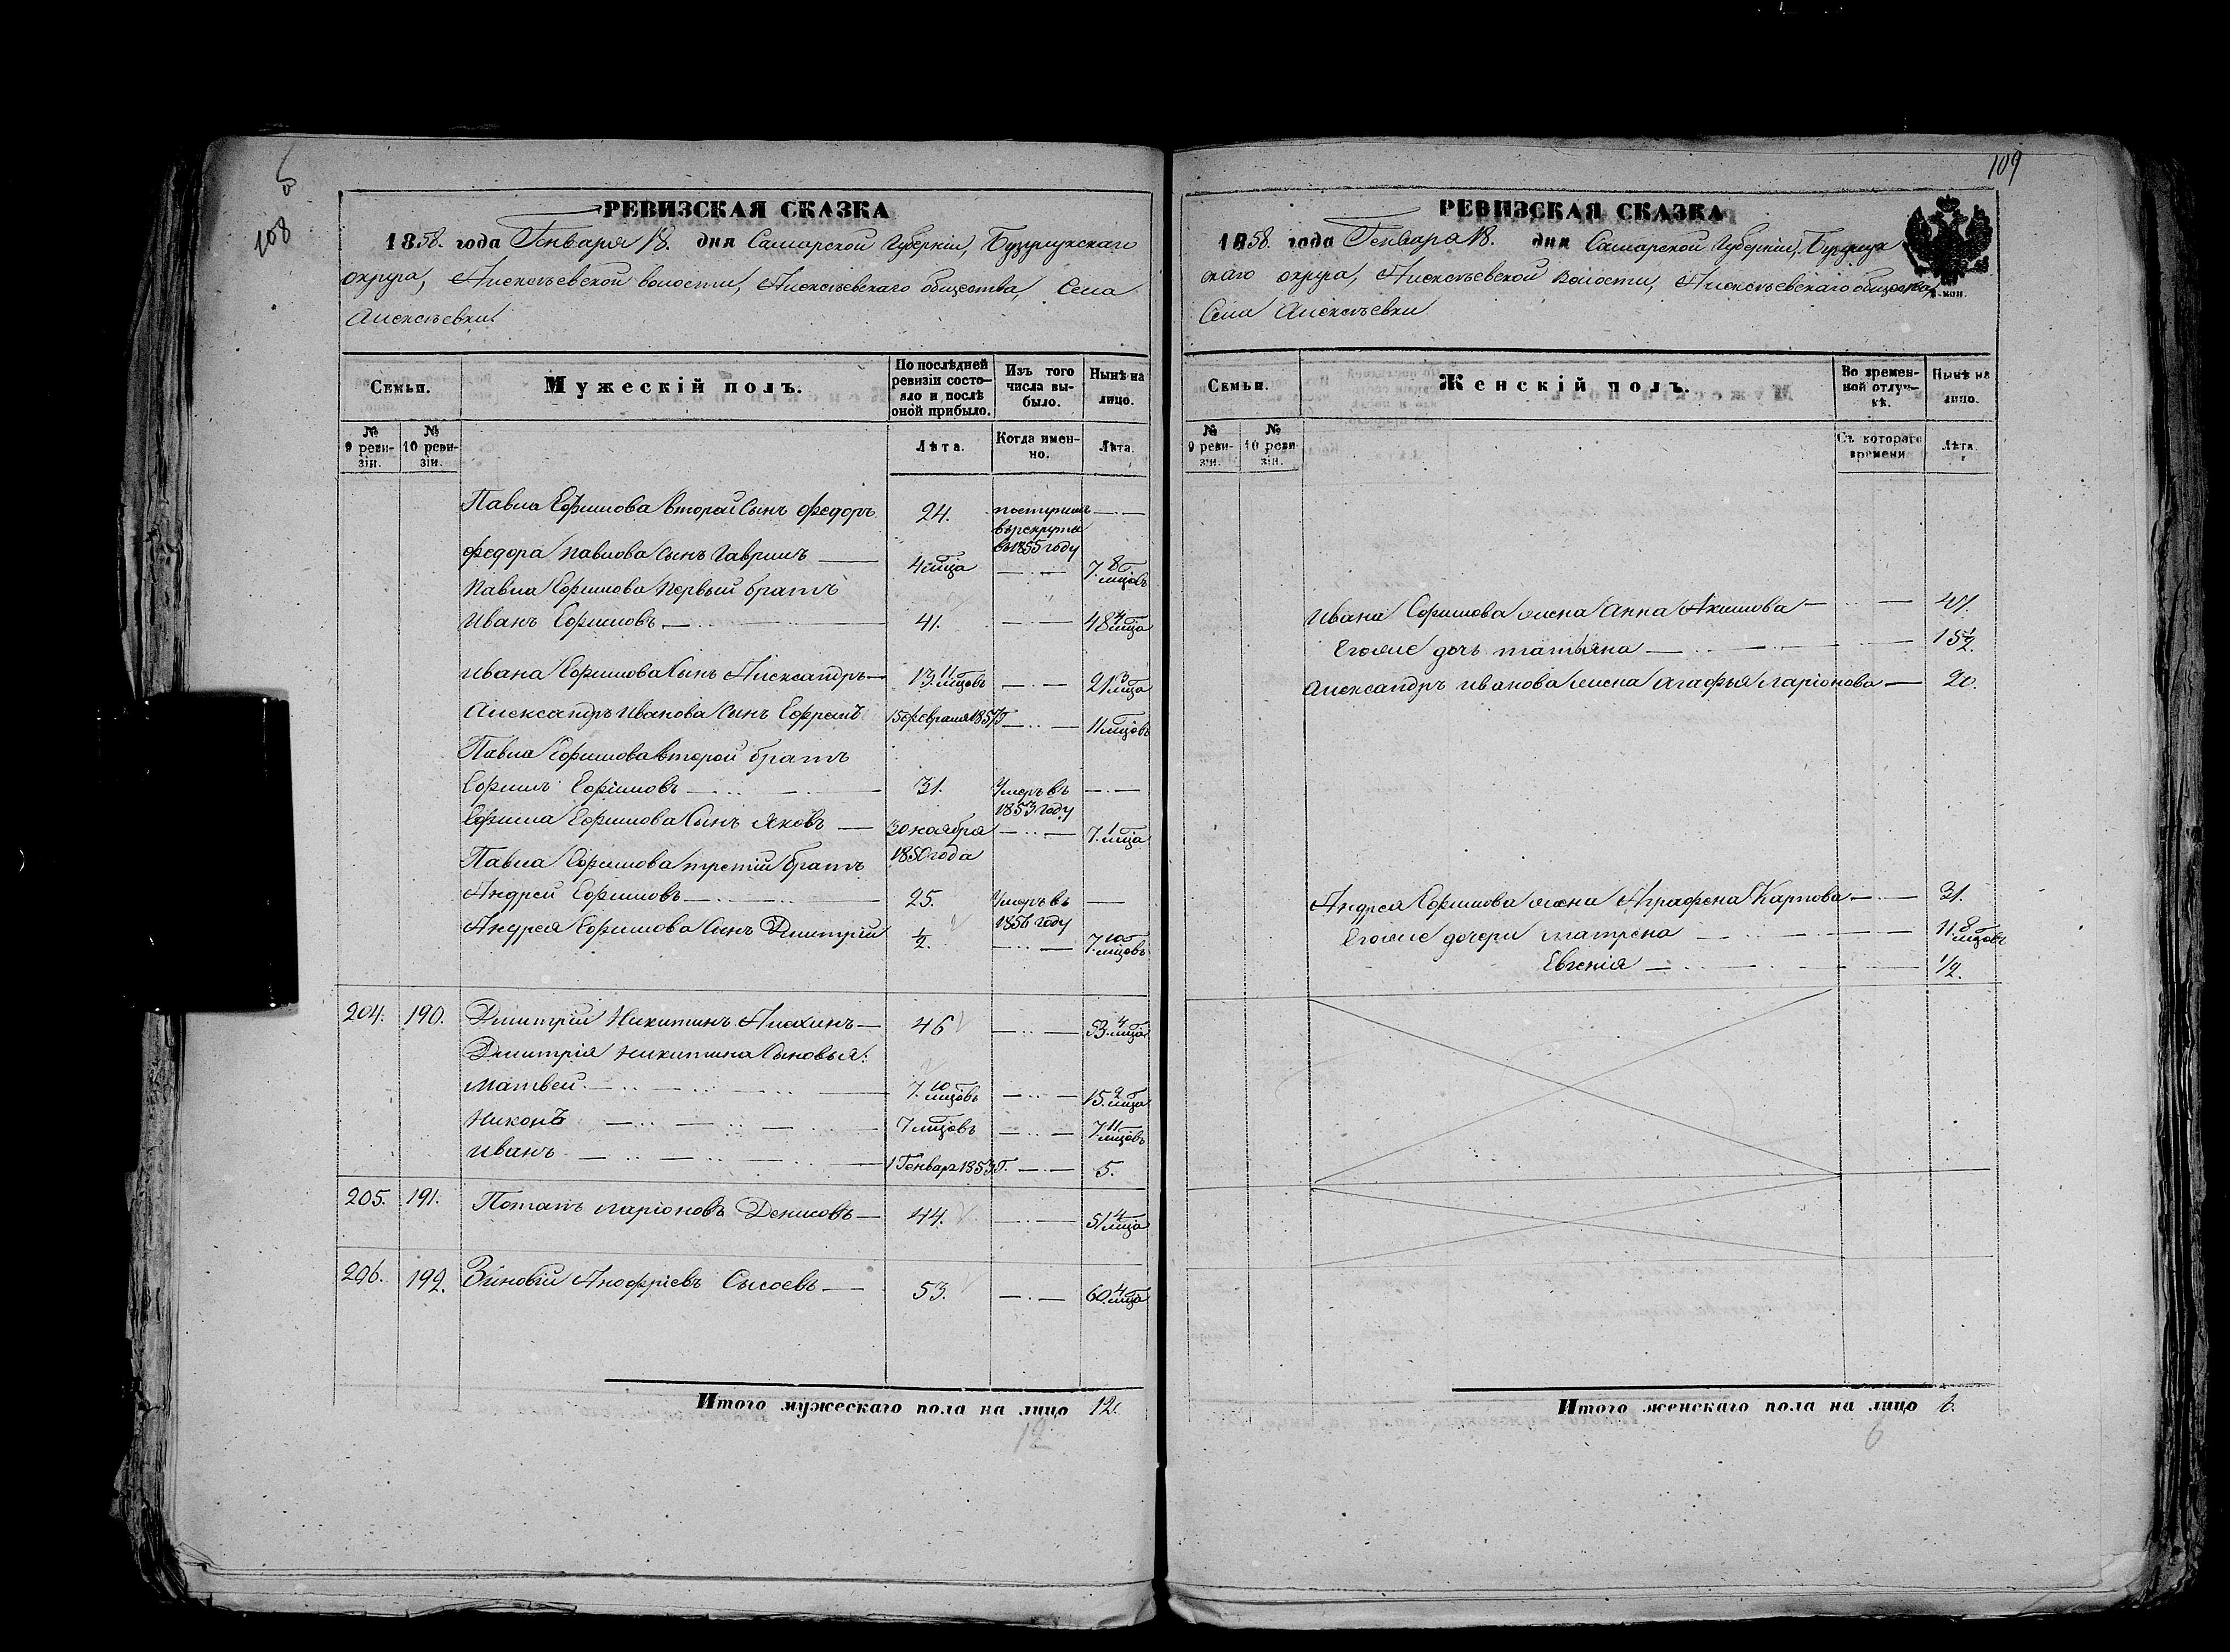 108
РЕВИЗСКАЯ СКАЗКА
1858. года Генваря 18. дня Самарской Губерніи, Бузулукскаго
округа, Алексѣевской волости, Алексѣевскаго общества, Села
Алексѣевки.
Семьи.
Мужескій полъ.
По послѣдней ревизіи состояло и послѣ оной прибыло.
Изъ того числа выбыло.
Нынѣ на лицо.
№ 9 ревизіи.
№ 10 ревизіи.
Лѣта.
Когда именно.
Лѣта.
Павла Ефимова второй сынъ Федоръ 24. поступилъ — · —
въ рекруты
въ 1855 году
Федора Павлова сынъ Гаврилъ — 4 мца — ·· — 7. 8 мцовъ
Павла Ефимова первый братъ
Иванъ Ефимовъ — 41. — ·· — 48 4 мца
Ивана Ефимова сынъ Александръ — 13 11 мцовъ — ·· — 21 3 мца
Александръ Иванова сынъ Ефремъ 15 февраля 1857 Г. — ·· — 11 мцовъ
Павла Ефимова второй братъ
Ефимъ Ефимовъ — 31. Умеръ въ — · —
1853 году
Ефима Ефимова сынъ Яковъ — 30 ноября — ·· — 7. 1 мца
1850 года
Павла Ефимова третій братъ
Андрей Ефимовъ — 25. Умеръ въ —
1856 году
Андрея Ефимова сынъ Дмитрій ½. — ·· — 7. 10 мцовъ
204. 190. Дмитрій Никитинъ — 46 — ·· — 53. 4 мца
Дмитрія Никитина сыновья:
Матвей — 7. 10 мцовъ — ·· — 15. 2 мца
Никонъ — 7 мцовъ — ·· — 7 11 мцовъ
Иванъ — 1 Генвар 1853 Г. — · — 5.
205. 191. Потапъ Ларіоновъ Денисовъ — 44. — ·· — 51 4 мца
206. 192. Зиновій Анофріевъ Сысоевъ — 53. — · — 60. 4 мца
Итого мужескаго пола на лицо 12.
12
109
РЕВИЗСКАЯ СКАЗКА
1858. года Генваря 18. дня Самарской Губерніи, Бузулук
скаго округа, Алексѣевской волости, Алексѣевскаго общества,
Села Алексѣевки
Семьи.
Женскій полъ.
Во временной отлучкѣ.
Нынѣ на лицо.
№ 9 ревизіи.
№ 10 ревизіи.
Съ котораго времени
Лѣта
Ивана Ефимова жена Анна Акимова — ·· — 47.
Егоже дочь Татьяна — 15½.
Александръ Иванова жена Агафья Ларіонова — 20.
Андрея Ефимова жена Аграфена Карпова — 31.
Егоже дочери Матрена — 11. 8 мцовъ
Евгенія — ½.
Итого женскаго пола на лицо 6.
6